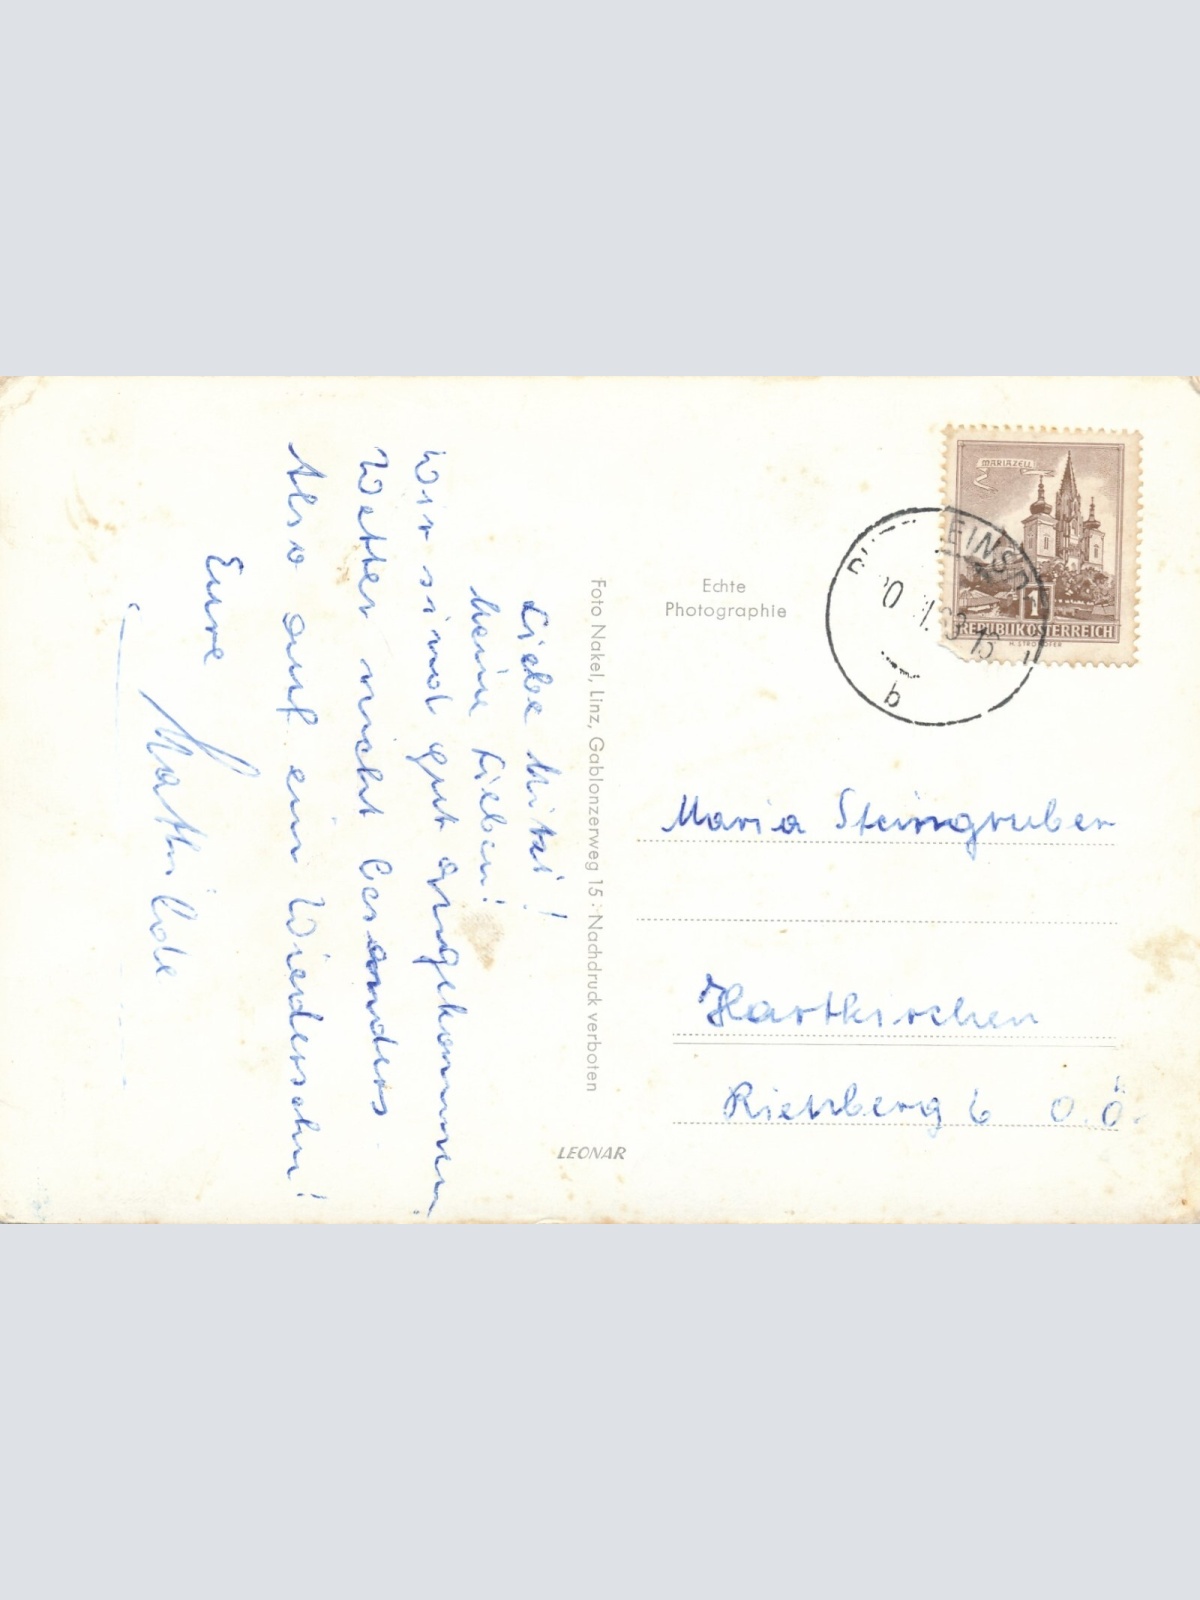 Liebe Mitzi!
Meine Lieben!
Wir sind gut angekommen.
Wetter nicht besonders
Also auf ein Wiedersehn!
Eure
Mathilde
Foto Nakel, Linz, Gablonzerweg 15 · Nachdruck verboten
LEONAR
Echte
Photographie
MARIAZELL
1
REPUBLIK ÖSTERREICH
b
Maria Steingruber
Hartkirchen
Rienberg 6 O.Ö.